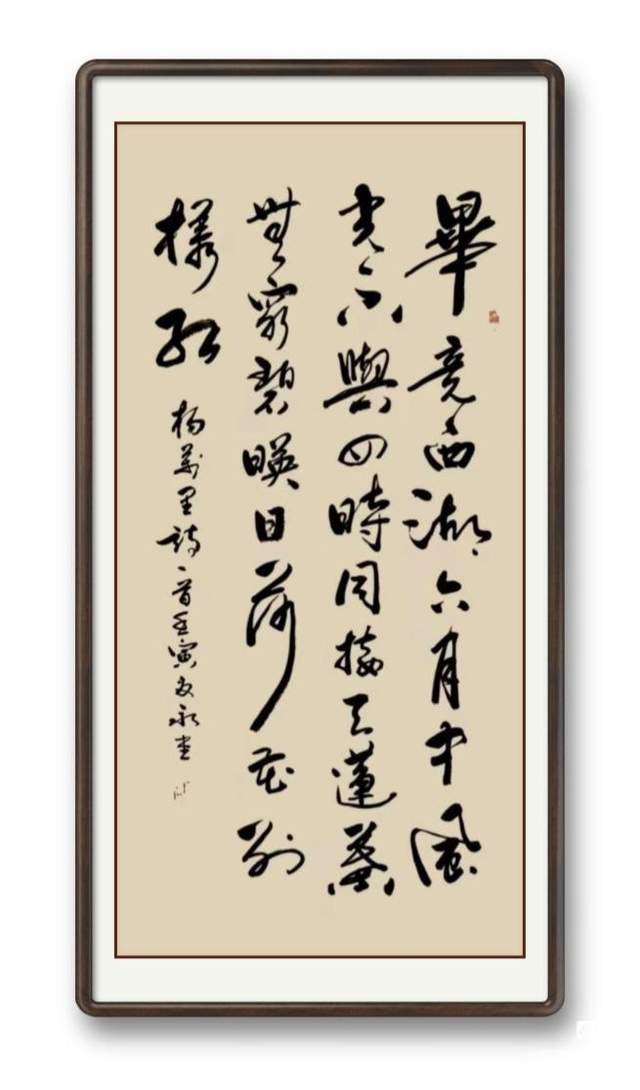 畢竟西湖六月中風
光不與四時同接天蓮葉
無窮碧暎日荷花别
樣紅
楊萬里詩一首壬寅夏永